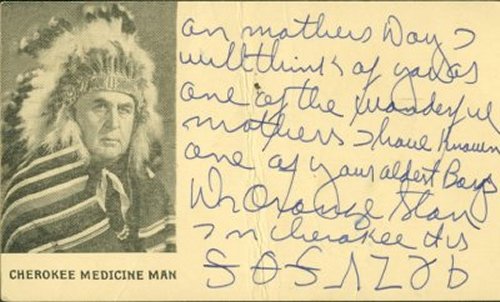 CHEROKEE MEDICINE MAN
on mothers Day I
will think of you as
one of the wonderful
mothers I have Known
one of your oldest Boys
Orange Starr
In Cherokee tis